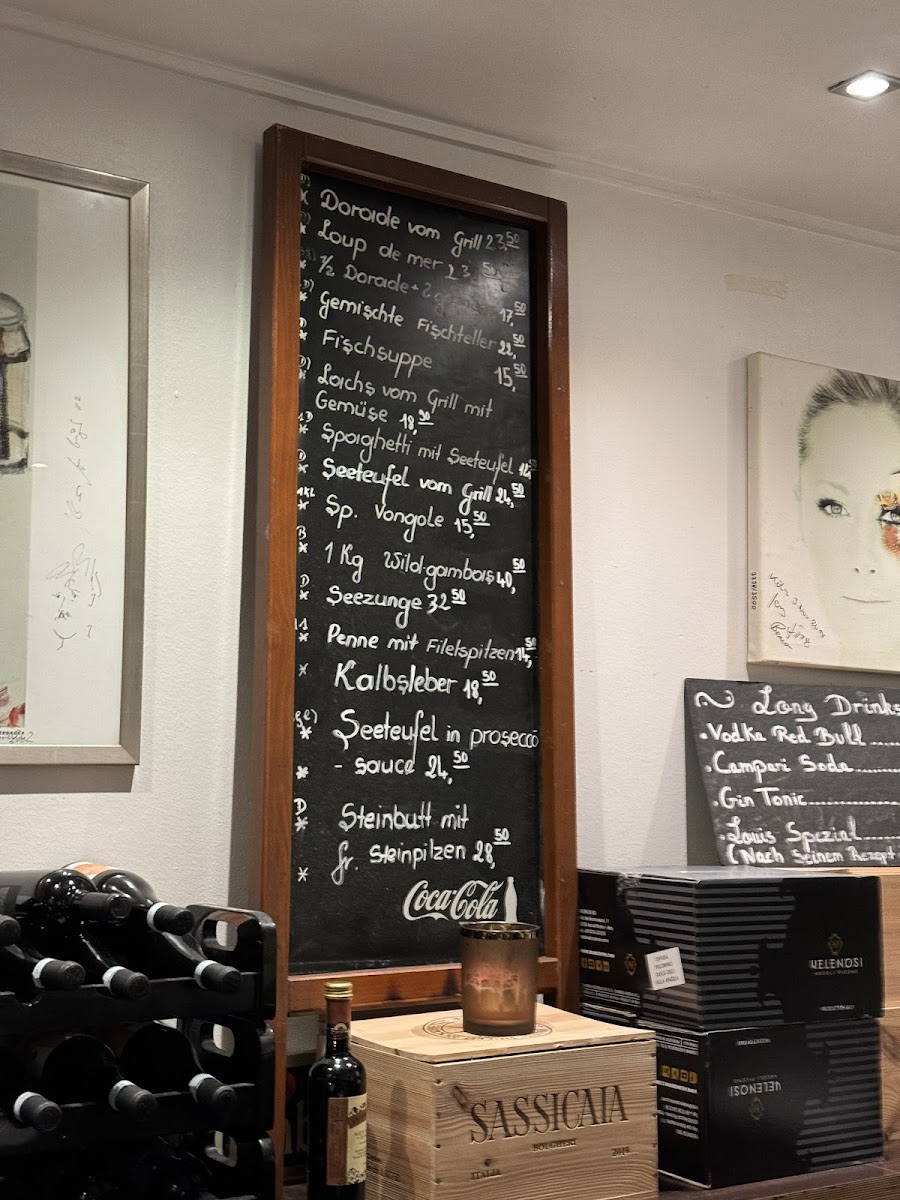 Dorade vom Grill 23,50
Loup de mer 23,50
1/2 Dorade + 2 17,50
Gemischte Fischteller 22,50
Fischsuppe 15,50
Lachs vom Grill mit
Gemüse 18,50
Spaighetti mit Seeteufel
Seeteufel vom Grill 24,50
Sp. Vongole 15,50
1 Kg Wild-gambas 40,50
Seezunge 32 50
Penne mit Filetspitzen 14,50
Kalbsleber 18,50
Seeteufel in prosecco
- sauce 24,50
Steinbutt mit
fr. Steinpilzen 28,50
Coca-Cola
Long Drinks
Vodka Red Bull
Campari Soda
Gin Tonic
Louis Spezial
(Nach Seinem Rezept
VELENOSI
VELENOSI
SASSICAIA
BOLGHERI
ITALIA